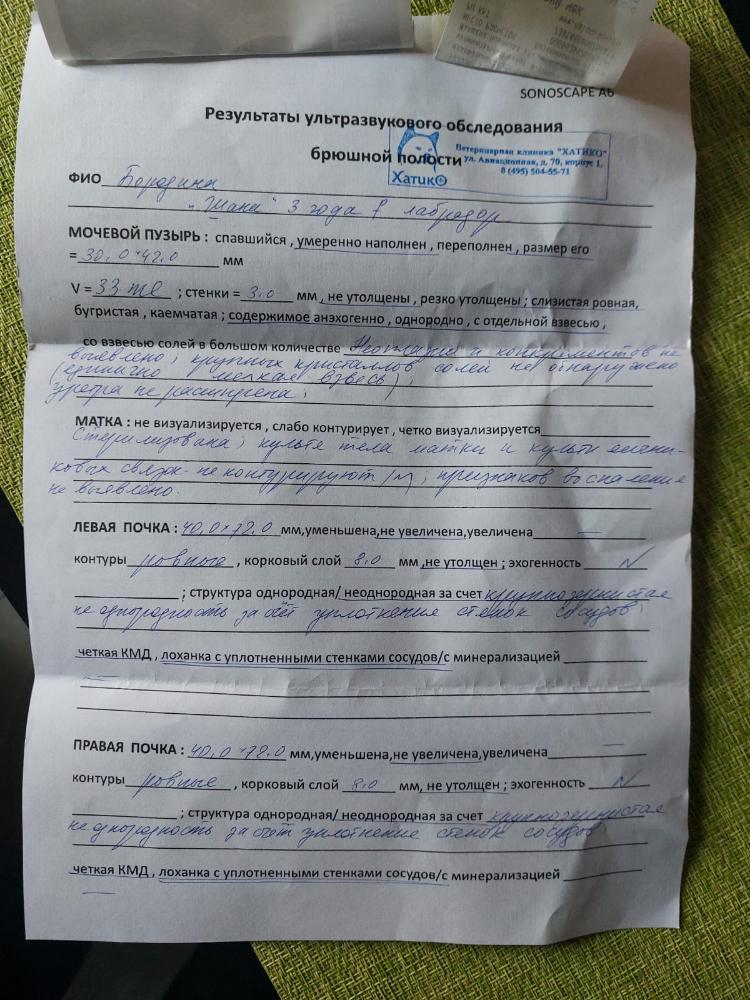 SONOSCAPE A6
Результаты ультразвукового обследования
брюшной полости
Хатико
Ветеринарная клиника "ХАТИКО"
ул. Авиационная, д. 70, корпус 1,
8 (495) 504-55-71
ФИО Бородина
"Шана" 3 года f лабрадор
МОЧЕВОЙ ПУЗЫРЬ : спавшийся , умеренно наполнен , переполнен , размер его
= 30,0*42,0 мм
V = 33 ml ; стенки = 3,0 мм , не утолщены , резко утолщены ; слизистая ровная,
бугристая , каемчатая ; содержимое анэхогенно , однородно , с отдельной взвесью ,
со взвесью солей в большом количестве Неоплазии и конкрементов не
выявлено ; крупных кристаллов солей не обнаружено
(единично мелкая взвесь) ;
уретра не расширена ;
МАТКА : не визуализируется , слабо контурирует , четко визуализируется
Стерилизована ; культя тела матки и культи яични-
ковых связок не контурируют ; признаков воспаления
не выявлено.
ЛЕВАЯ ПОЧКА : 40,0*72,0 мм,уменьшена,не увеличена,увеличена —
контуры ровные , корковый слой 8,0 мм ,не утолщен ; эхогенность N
; структура однородная/ неоднородная за счет крупнозернистая
неоднородность за счёт уплотнение стенок сосудов ;
четкая КМД , лоханка с уплотненными стенками сосудов/с минерализацией
—
ПРАВАЯ ПОЧКА : 40,0*72,0 мм,уменьшена,не увеличена,увеличена —
контуры ровные , корковый слой 8,0 мм, не утолщен ; эхогенность N
; структура однородная/ неоднородная за счет крупнозернистая
неоднородность за счёт уплотнение стенок сосудов ;
четкая КМД , лоханка с уплотненными стенками сосудов/с минерализацией
—